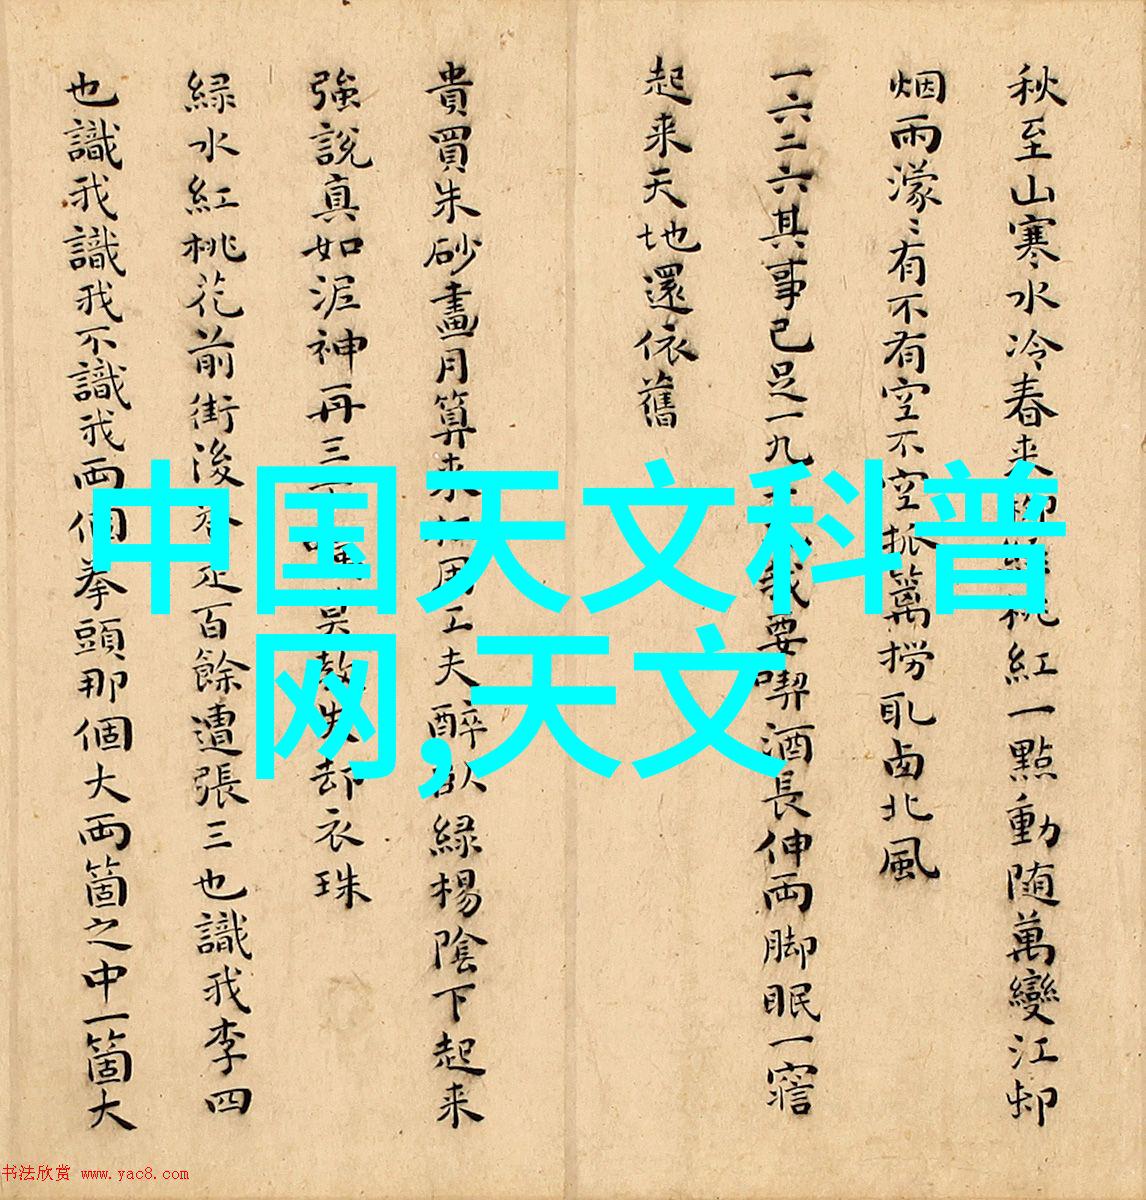 秋至山寒水冷春来柳綠桃紅一點動随萬變江邨
烟雨濛〻有不有空不空抓篱撈取西北風
一六二六其事已足一九二九我要喫酒長伸両脚眠一寤
起来天地還依舊
貴買朱砂畫月算来用工夫醉臥緑楊陰下起来
強說真如泥神再三莫教失却衣珠
緑水紅桃花前街後巷走百餘遭張三也識我李四
也識我識我不識我両個拳頭那個大両箇之中一箇大
中国天文科普
网,天文
书法欣赏 www.yac8.com